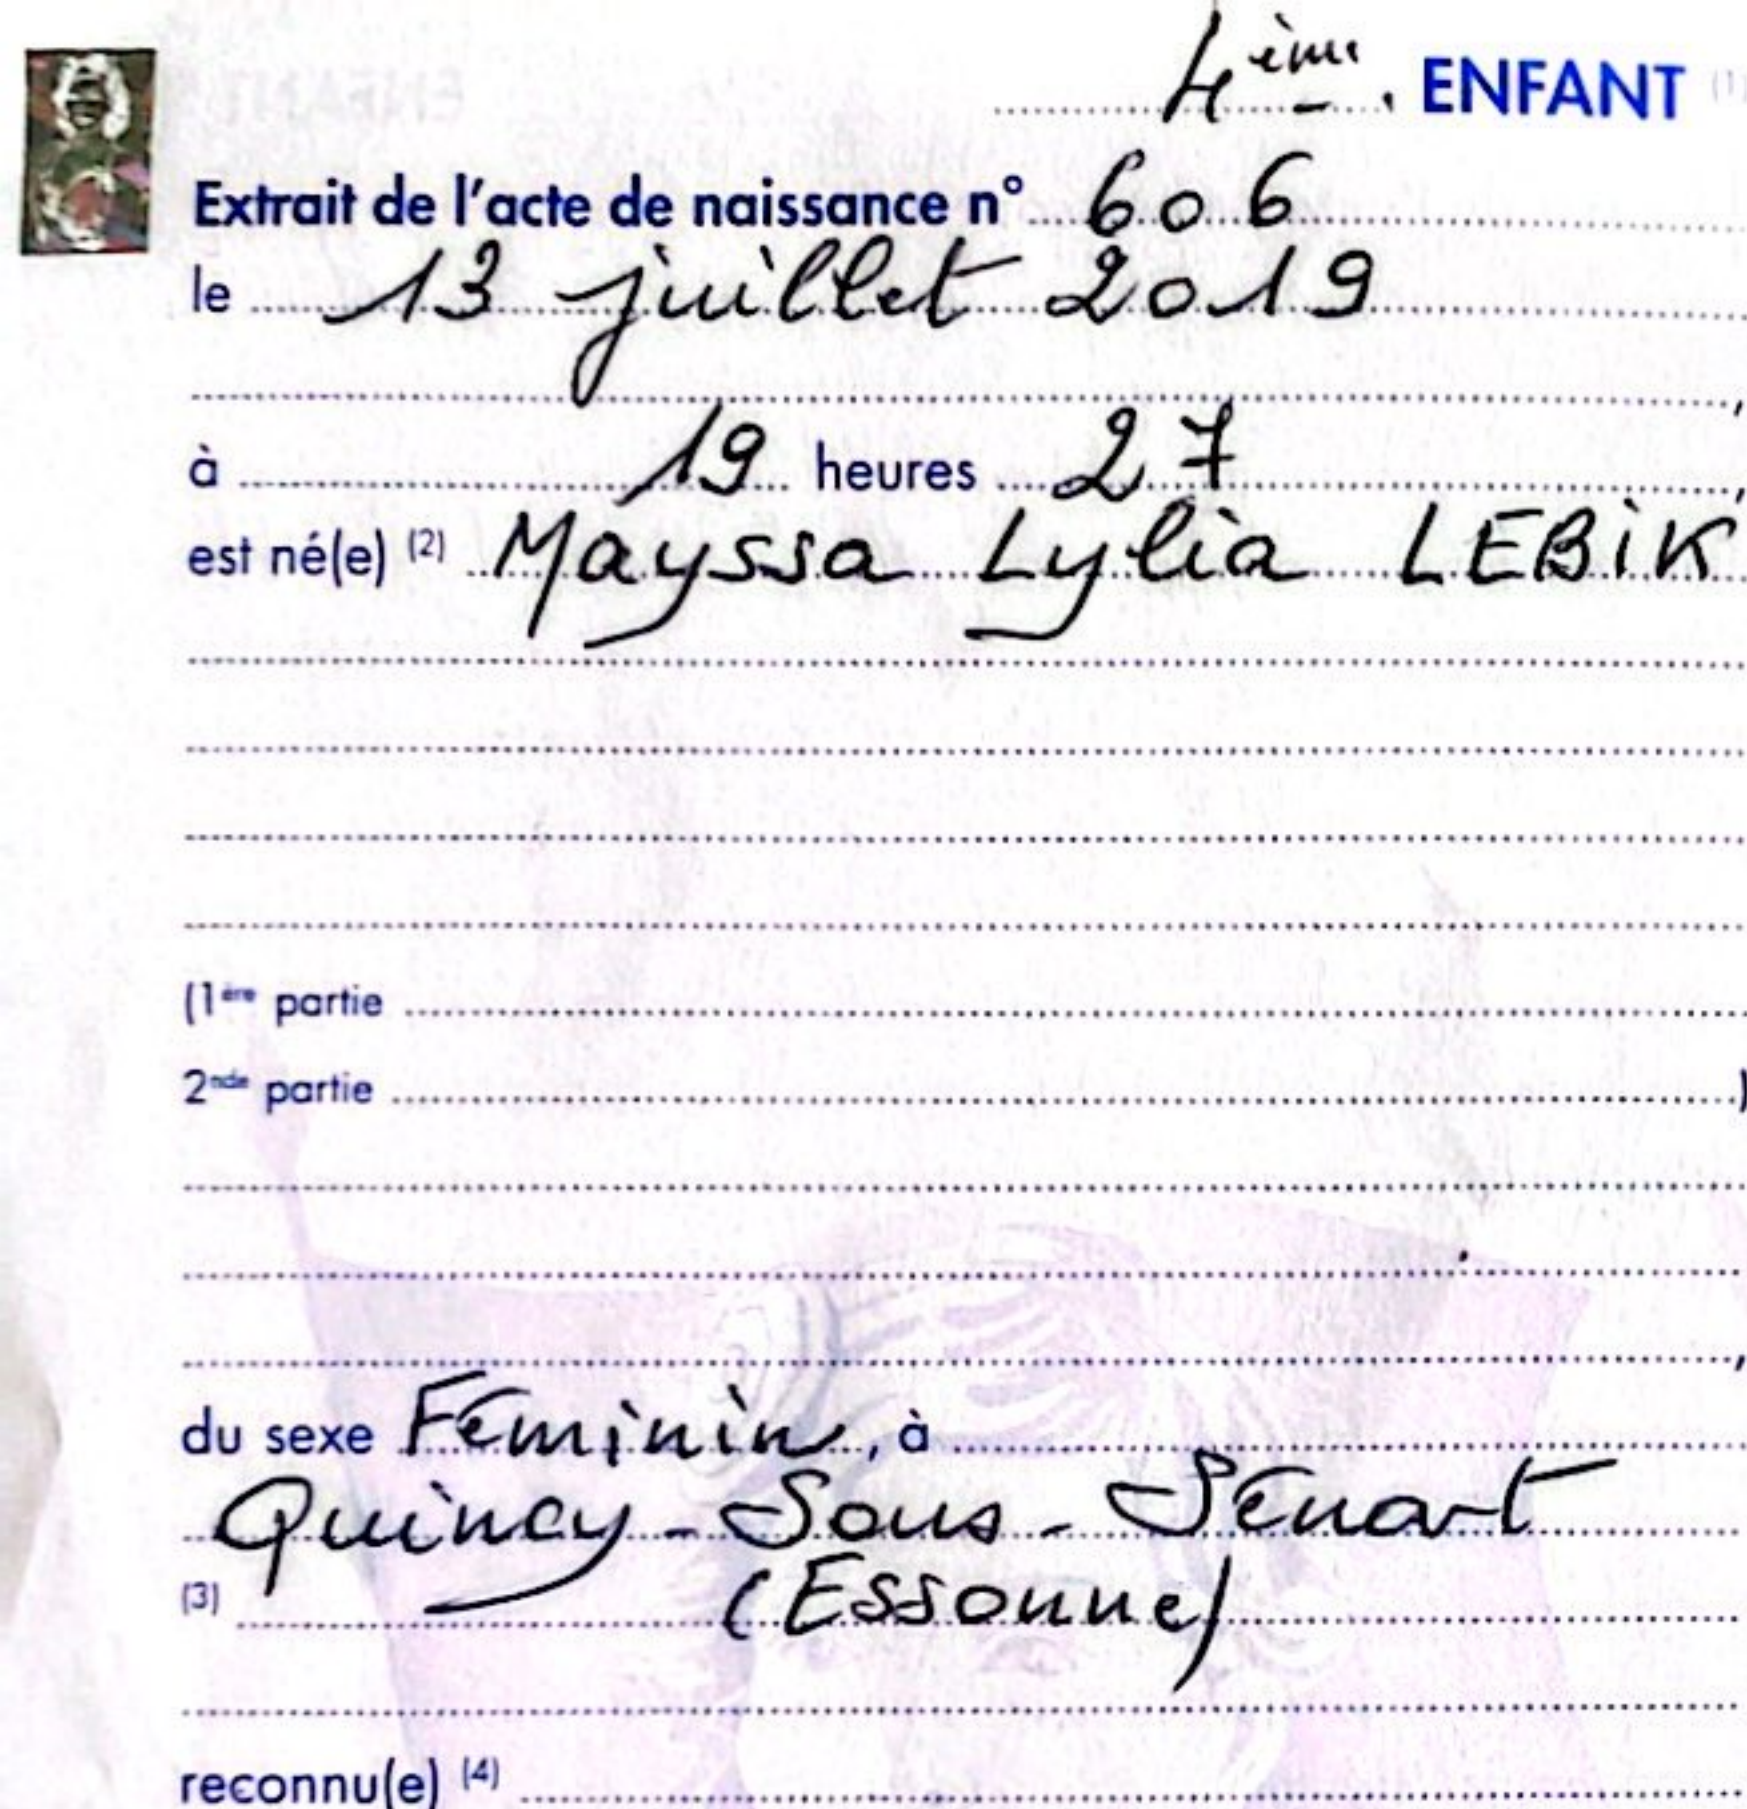 4ème. ENFANT (1)
Extrait de l'acte de naissance n° 606
le 13 juillet 2019
,
à 19 heures 27 ,
est né(e) (2) Mayssa Lylia LEBiK
(1ère partie
2nde partie )
,
du sexe Féminin , à
Quincy-Sous-Sénart
(3) (Essonne)
reconnu(e) (4)